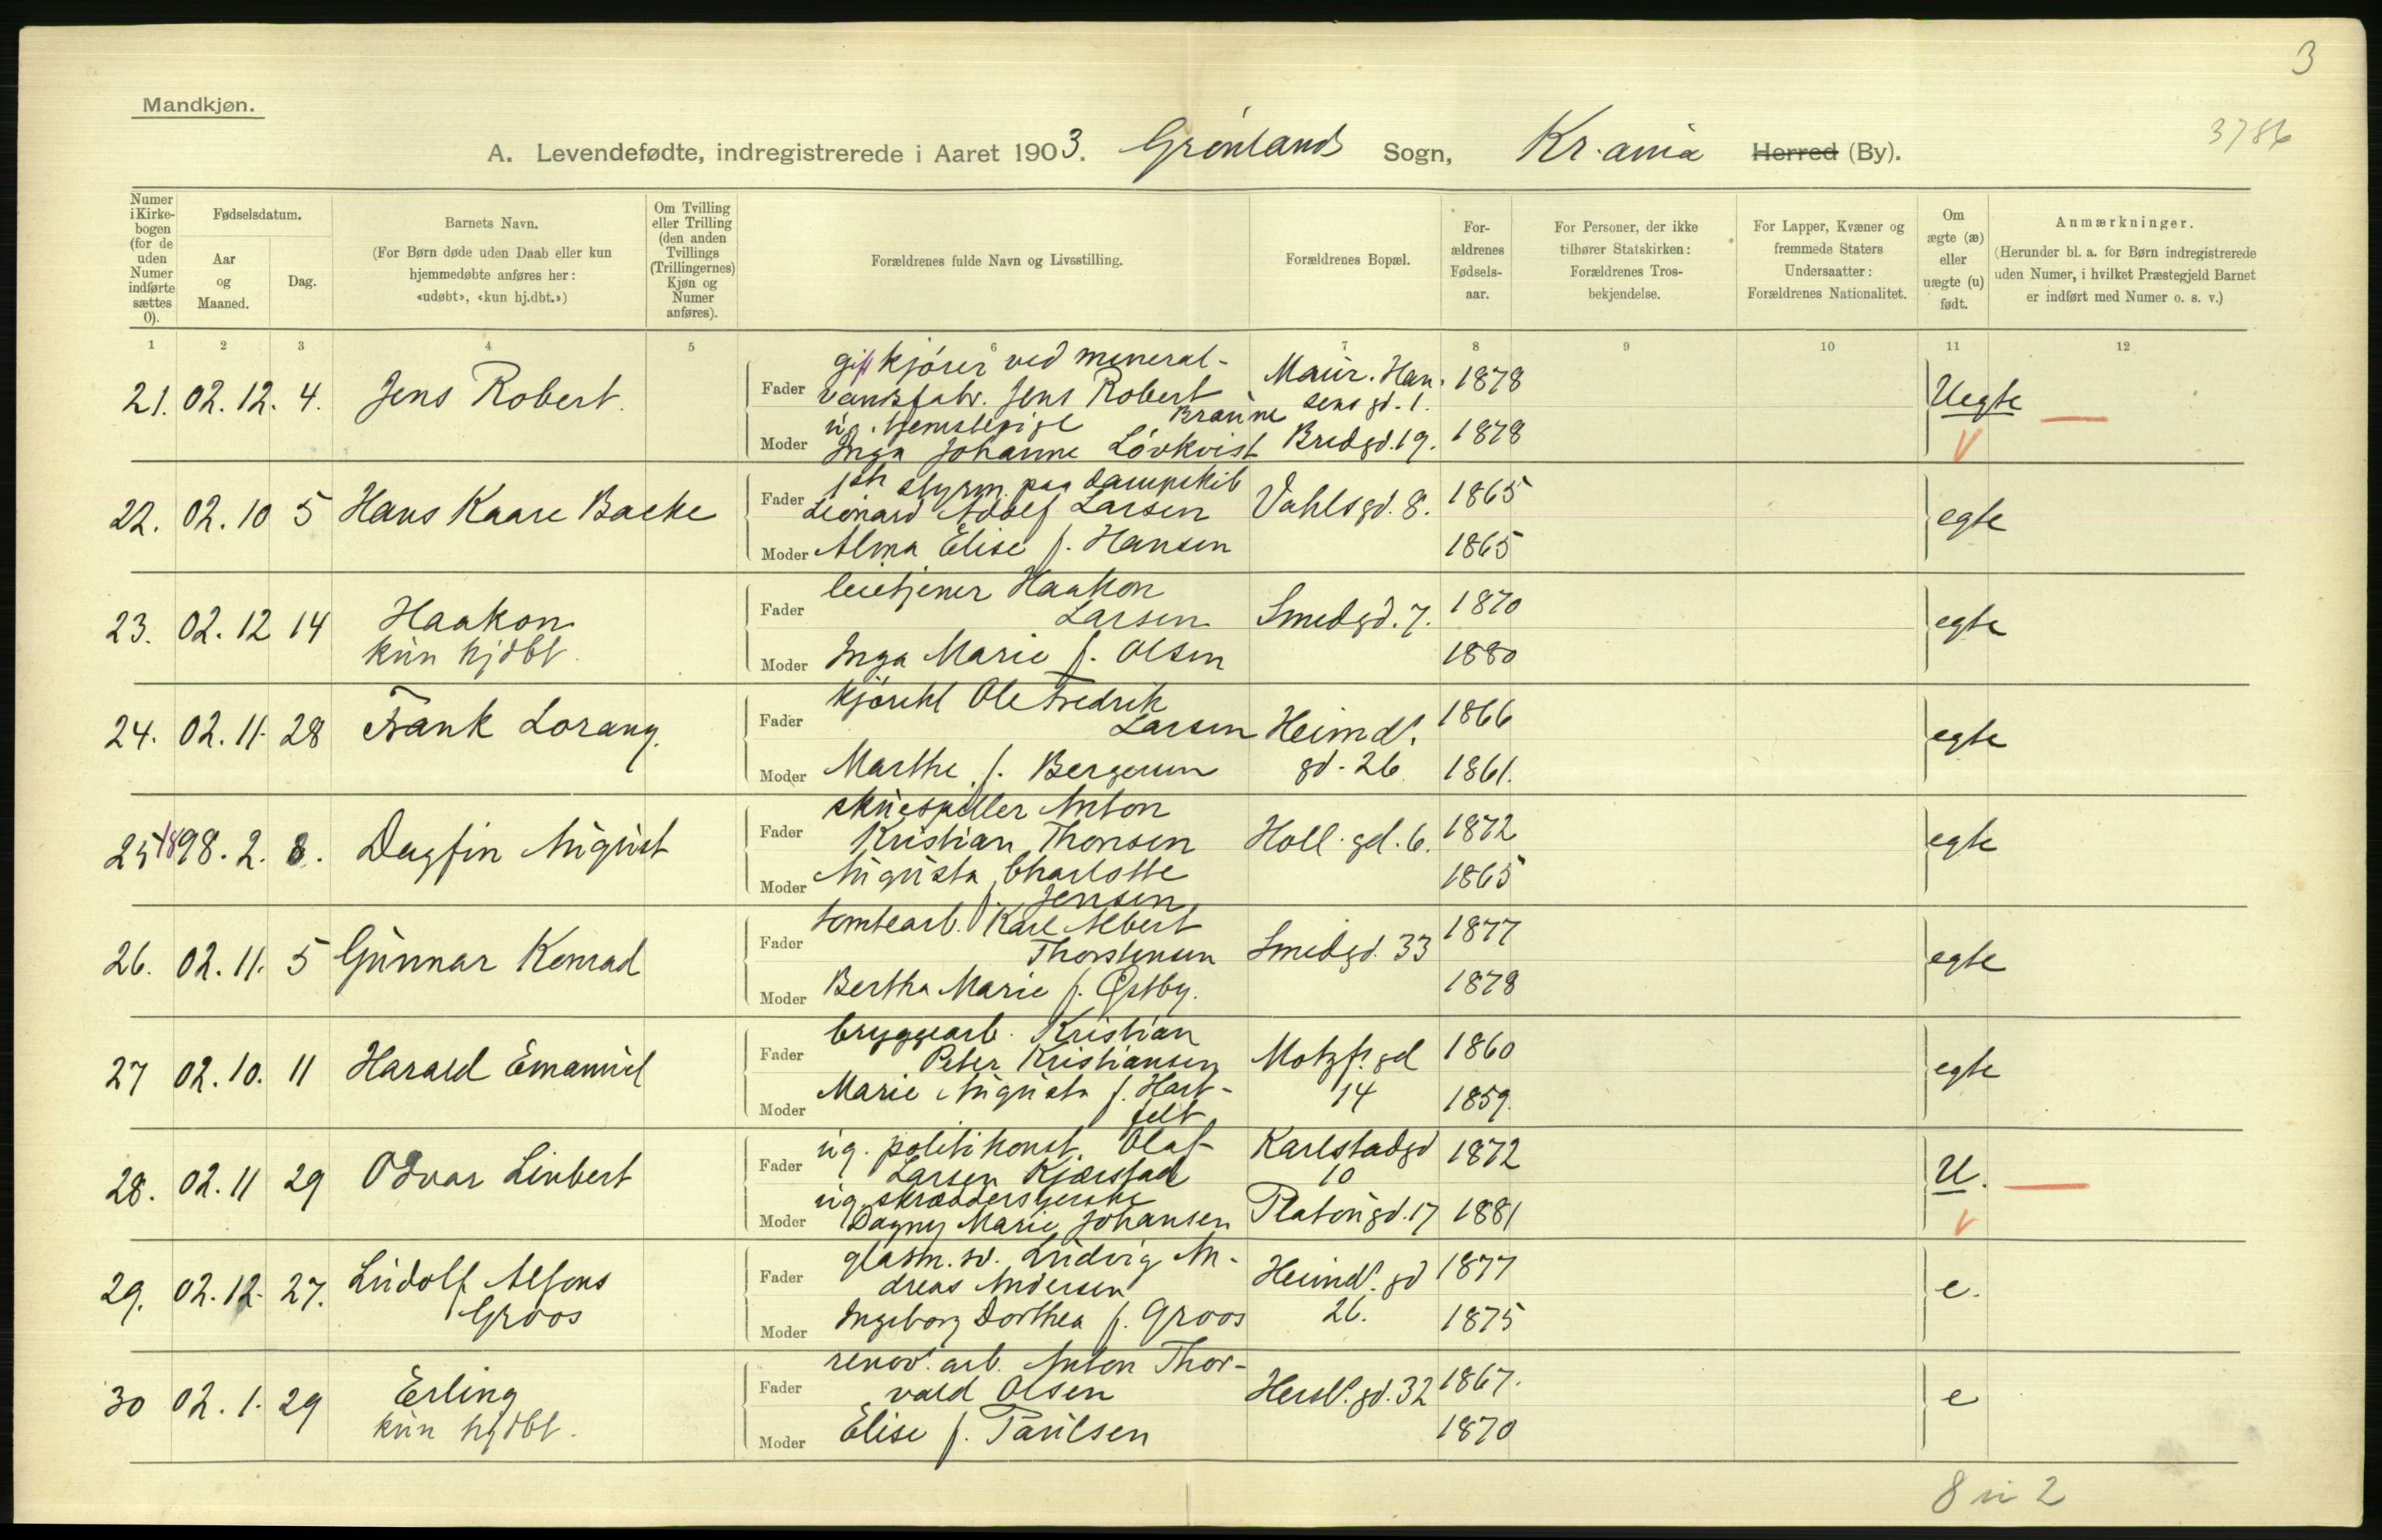 3
Mandkjøn.
3786
A. Levendefødte, indregistrerede i Aaret 1903. Grønlands Sogn, Kr.ania Herred (By).
Numer i Kirke-bogen (for de uden Numer indførte sættes 0).
Fødselsdatum.
Aar og Maaned.
Dag.
Barnets Navn.
(For Børn døde uden Daab eller kun hjemmedøbte anføres her: «udøbt», «kun hj.dbt.»)
Om Tvilling eller Trilling (den anden Tvillings (Trillingernes) Kjøn og Numer anføres).
Forældrenes fulde Navn og Livsstilling.
Forældrenes Bopæl.
For-ældrenes Fødsels-aar.
For Personer, der ikke tilhører Statskirken: Forældrenes Tros-bekjendelse.
For Lapper, Kvæner og fremmede Staters Undersaatter: Forældrenes Nationalitet.
Om ægte (æ) eller uægte (u) født.
Anmærkninger.
(Herunder bl. a. for Børn indregistrerede uden Numer, i hvilket Præstegjeld Barnet er indført med Numer o. s. v.)
1 2 3 4 5 6 7 8 9 10 11 12
21. 02. 12. 4. Jens Robert.
Fader gift kjører ved mineral-
vandsfabr. Jens Robert
Braune
Maur. Han.
sens gd. 1.
1878
Uegte
Moder ug. tjenestepige
Inga Johanne Lövkvist Bredgd. 19. 1878
22. 02. 10 5 Hans Kaare Backe
Fader 1ste styrm. paa dampskib
Leonard Adolf Larsen Vahlsgd. 8. 1865
egte
Moder Alma Elise f. Hansen 1865
23. 02. 12 14 Haakon
kun hjdbt.
Fader leietjener Haakon
Larsen Smedgd. 7. 1870
egte
Moder Inga Marie f. Olsen 1880
24. 02. 11. 28 Frank Lorang.
Fader kjørekl Ole Fredrik
Larsen Heimds. 1866
egte
Moder Marthe f. Bergersen gd. 26 1861.
25 1898. 2. 8. Dagfin August
Fader skuespiller Anton
Kristian Thonsen Holl. gd. 6. 1872
egte
Moder Augusta Charlotte
f. Jensen 1865
26. 02. 11. 5 Gunnar Konrad
Fader tomtearb. Karl Albert
Thorstensen Smedgd. 33 1877
egte
Moder Bertha Marie f. Østby. 1878
27 02. 10. 11 Harald Emanuel
Fader bryggearb. Kristian
Peter Kristiansen Motzfs. gd 1860
egte
Moder Marie Augusta f. Hart-
felt 14 1859.
28. 02. 11 29 Odvar Linbert
Fader ug. politikonst. Olaf
Larsen Kjærstad Karlstadgd
10 1872
U.
Moder ug. skræddersyerske
Dagny Marie Johansen Platousgd. 17 1881
29. 02. 12. 27. Ludolf Alfons
Groos
Fader glasm. sv. Ludvig An-
dreas Andersen Heimds. gd 1877
e.
Moder Ingeborg Dorthea f. Groos 26. 1875
30 02. 1. 29 Erling
kun hjdbt.
Fader renov. arb. Anton Thor-
vald Olsen Hersls. gd. 32 1867.
e
Moder Elise f. Paulsen 1870
8 u 2